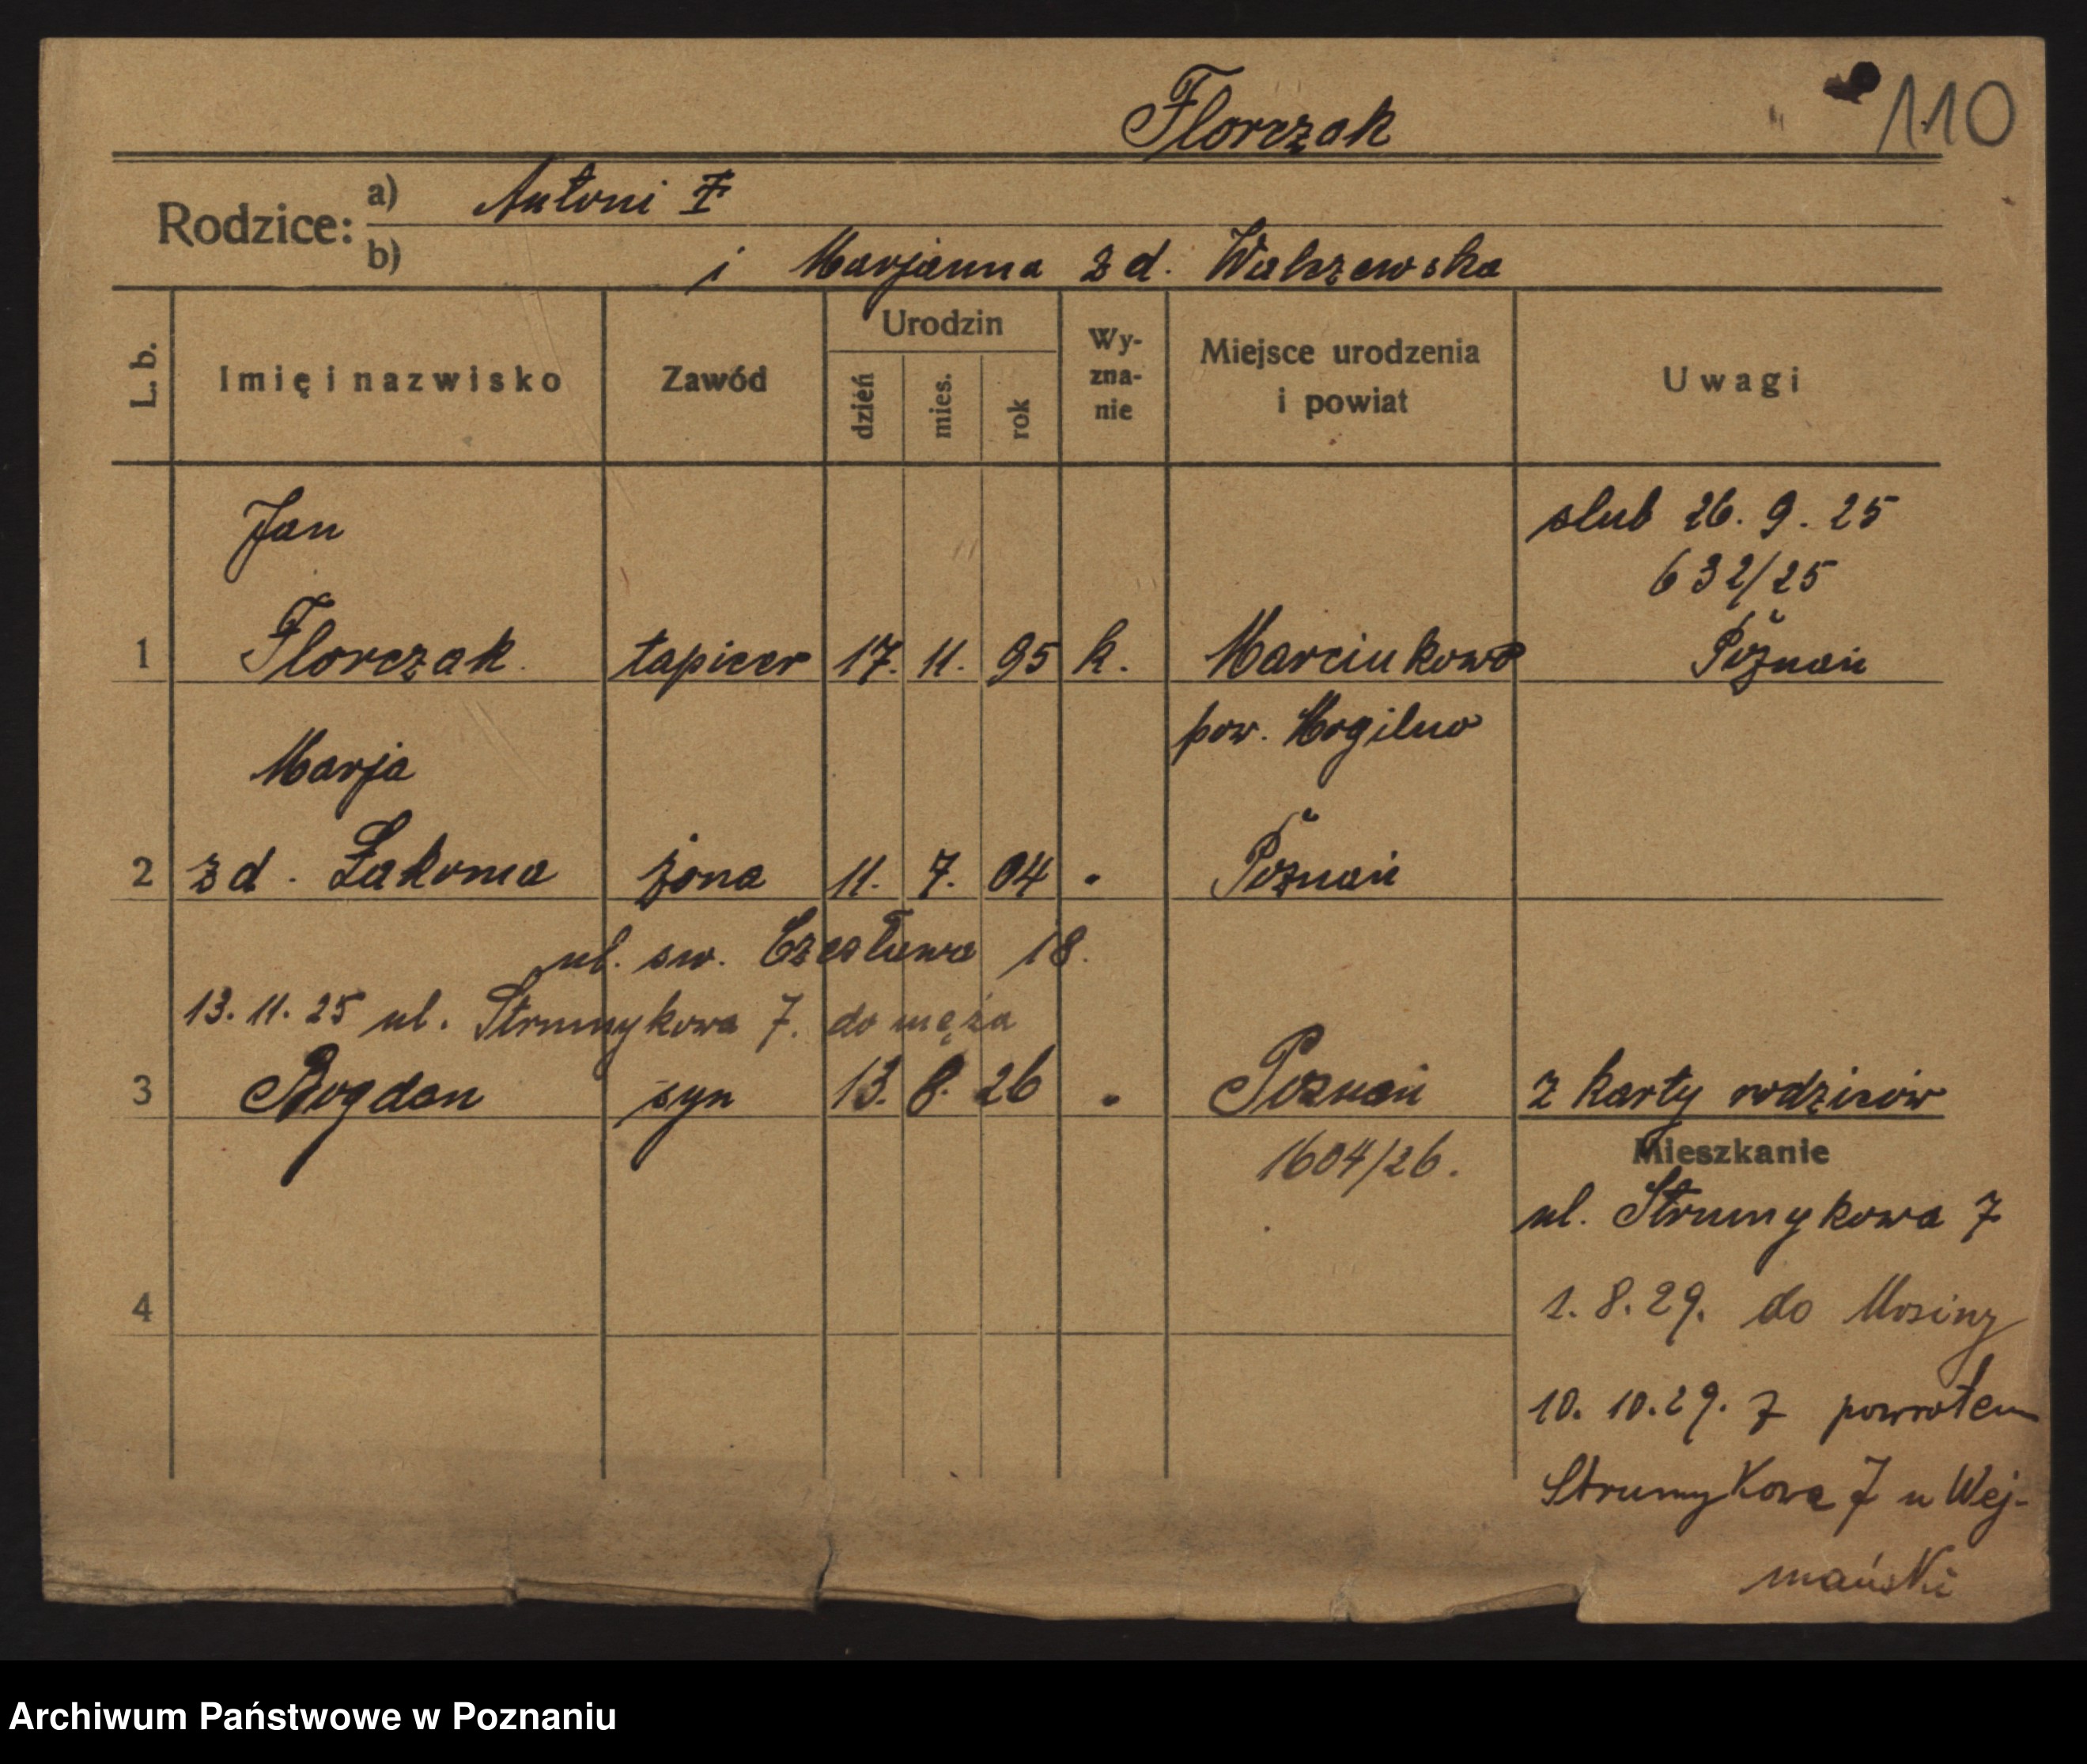 Florczak
110
Rodzice: a) Antoni F
b) i Marjanna zd. Walczewska
L. b. Imię i nazwisko Zawód Urodzin dzień mies. rok Wy-zna-nie Miejsce urodzenia i powiat Uwagi
Jan
slub 26. 9. 25
632/25
1 Florczak tapicer 17. 11. 95 k. Marcinkowo Poznań
pow. Mogilno
Marja
2 zd. Łakoma żona 11. 7. 04 " Poznań
ul. sw. Czesława 18.
13. 11. 25 ul. Strumykowa 7. do męża
3 Bogdan syn 13. 8. 26 " Poznań z karty rodziców
1604/26.
Mieszkanie
ul. Strumykowa 7
4
1. 8. 29. do Mosiny
10. 10. 29. z powrotem
Strumykowa 7 u Wej-
mański
Archiwum Państwowe w Poznaniu